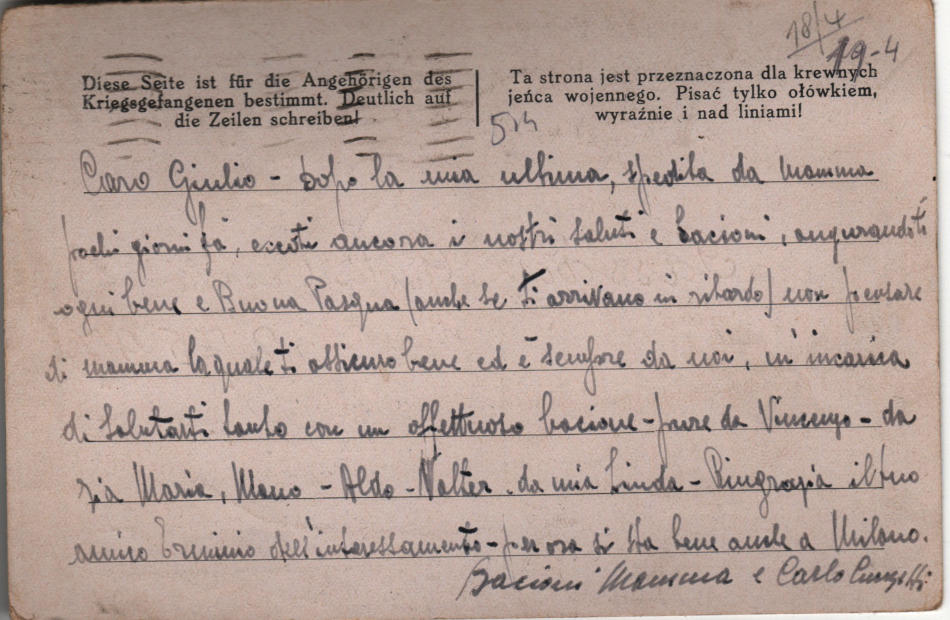 18/4
19-4
Diese Seite ist für die Angehörigen des
Kriegsgefangenen bestimmt. Deutlich auf
die Zeilen schreiben!
Ta strona jest przeznaczona dla krewnych
jeńca wojennego. Pisać tylko ołówkiem,
wyraźnie i nad liniami!
Caro Giulio - Dopo la mia ultima, spedita da Mamma
pochi giorni fà, eccoti ancora i nostri saluti e bacioni, augurandoti
ogni bene e Buona Pasqua (anche se ti arrivano in ritardo) non pensare
di mamma la quale ti assicuro bene ed è sempre da noi, m'incarica
di salutarti tanto con un affettuoso bacione - pure da Vincenzo - da
zia Maria, - Aldo - Valter - da mia Linda - Ringrazia il tuo
amico Erminio dell'interessamento - per ora si sta bene anche a Milano.
Bacioni Mamma e Carlo